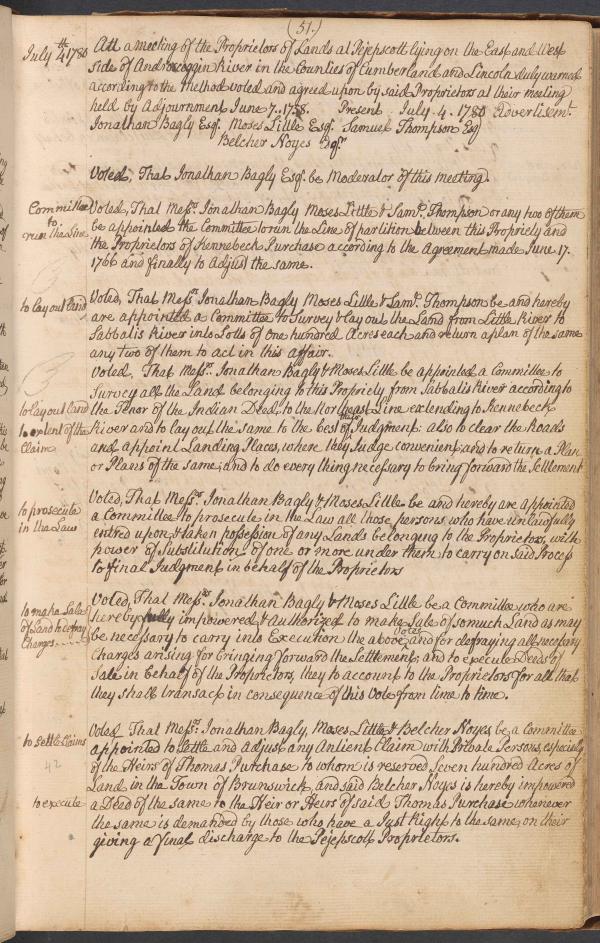 (51.)
July 4th 1780
Att a meeting of the Proprietors of Lands at Pejepscott lying on the East and West
side of Androscoggin River in the Counties of Cumberland and Lincoln duly warned
according to the Method voted and agreed upon by said Proprietors at their meeting
held by Adjournment June 7. 1758. Present July . 4 . 1780 Advertisemt.
Jonathan Bagly Esqr. Moses Little Esqr. Samuel Thompson Esq
Belcher Noyes Esqr
Voted, That Jonathan Bagly Esqr. be Moderator of this meeting.
Committee to run the Line
Voted, That Messrs. Jonathan Bagly Moses Little & Saml. Thompson or any two of them
be appointed the Committee to run the Line of partition between this Propriety and
the Proprietors of Kennebeck Purchase according to the Agreement made June 17.
1766 and finally to Adjust the same.
to lay out land
Voted, That Messrs. Jonathan Bagly Moses Little & Saml. Thompson be and hereby
are appointed a Committee to Survey & lay out the Land from Little River to
Sabbatis River into Lotts of one hundred Acres each and return a plan of the same
any two of them to act in this affair.
Voted, That Messrs. Jonathan Bagly & Moses Little be appointed a Committee to
Survey all the Land belonging to this Propriety from Sabbatis River according to
to lay out land
the Tenor of the Indian Deed, to the Northeast Line extending to Kennebeck
to extent of the Claim
River and to lay out the same to the best of their Judgment; also to clear the Roads
and appoint Landing Places, where they Judge convenient, and to return a Plan
or Plans of the same; and to do every thing necessary to bring forward the Settlement
to prosecute in the Law
Voted, That Messrs. Jonathan Bagly & Moses Little be and hereby are appointed
a Committee to prosecute in the Law all those persons, who have unlawfully
entred upon & taken possession of any Lands belonging to the Proprietors, with
power of Substitution of one or more under them to carry on said Process
to final Judgment in behalf of the Proprietors
to make Sale of Land to defray Charges
Voted, That Messrs. Jonathan Bagly & Moses Little be a Committee who are
hereby fully impowered & Authorized to make Sale of so much Land as may
be necessary to carry into Execution the above Votes and for defraying all necessary
Charges arising for bringing forward the Settlement; and to execute Deeds of
Sale in behalf of the Proprietors, they to account to the Proprietors for all that
they shall transact in consequence of this Vote from time to time.
to settle Claims
Voted That Messrs. Jonathan Bagly, Moses Little & Belcher Noyes be a Committee
appointed to settle and adjust any Antient Claim with Private Persons, especialy
42
of the Heirs of Thomas Purchase to whom is reserved Seven hundred Acres of
Land in the Town of Brunswick, and said Belcher Noyes is hereby impowered
to execute
a Deed of the same to the Heir or Heirs of said Thomas Purchase whenever
the same is demanded by those who have a Just Right to the same, on their
giving a final discharge to the Pejepscott Proprietors.